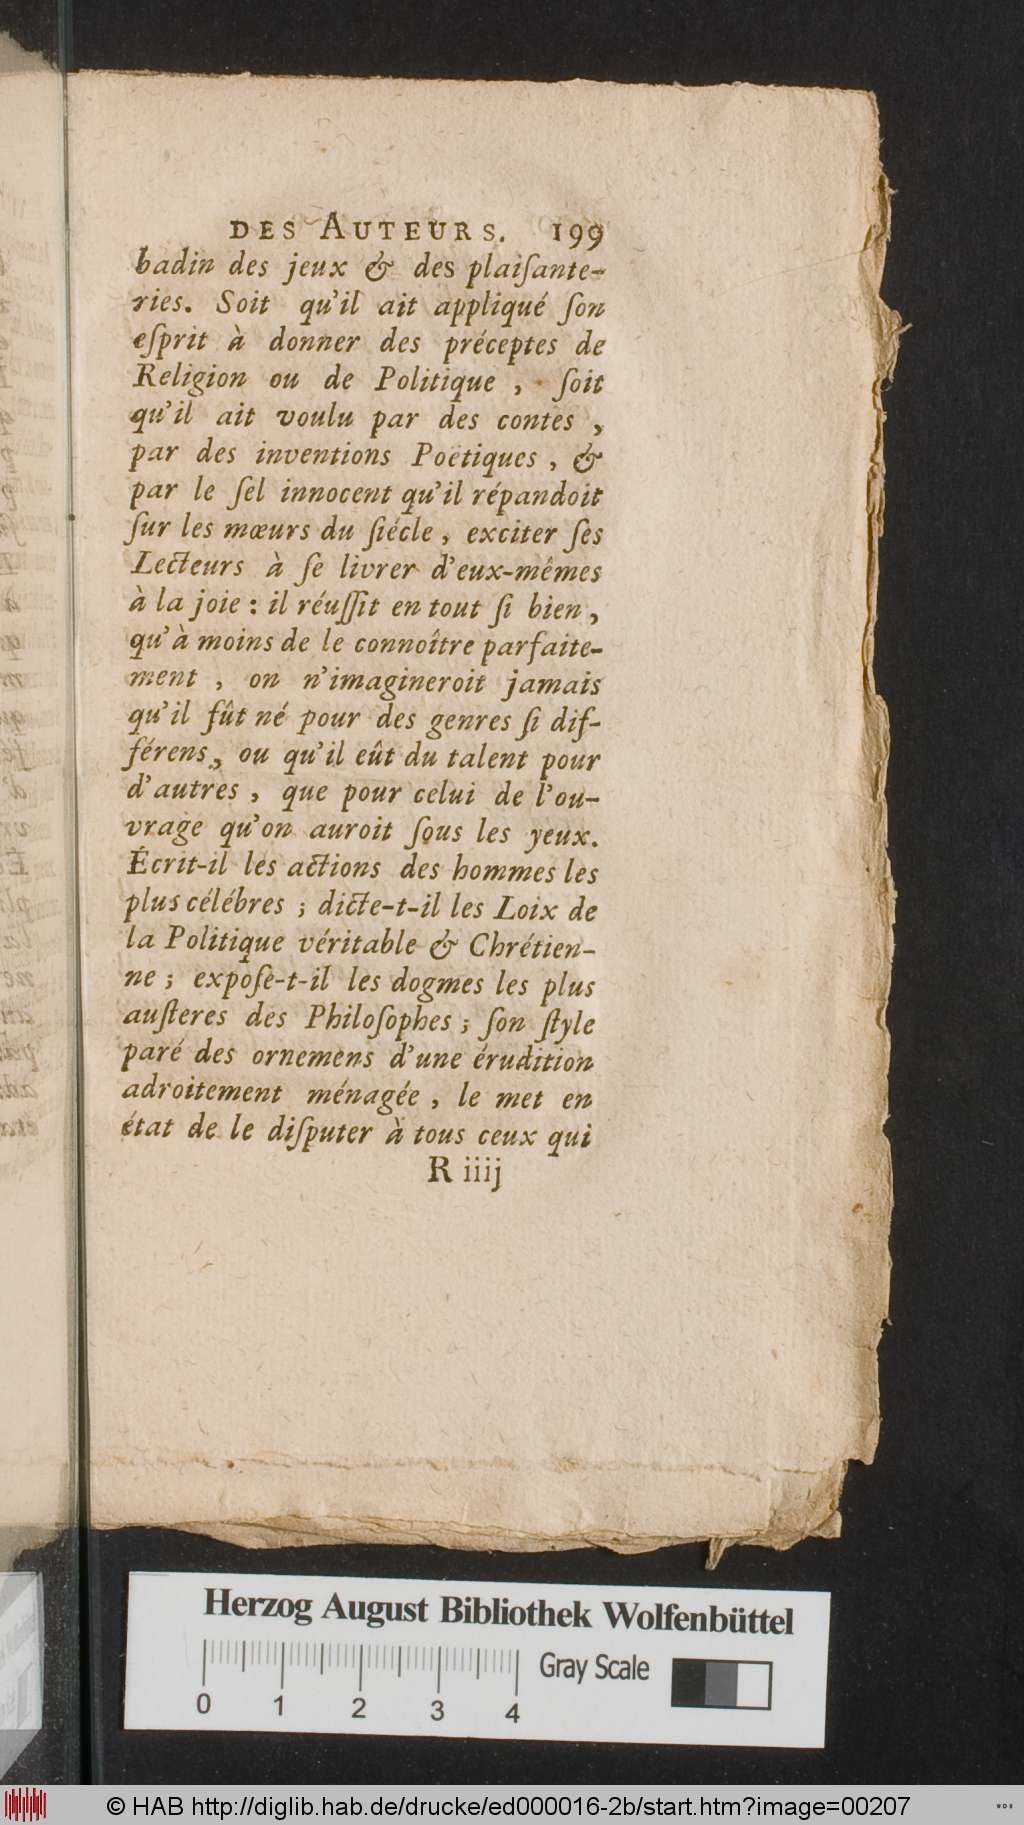 DES AUTEURS. 199
badin des jeux & des plaiſante-
ries. Soit qu'il ait appliqué ſon
eſprit à donner des préceptes de
Religion ou de Politique , ſoit
qu'il ait voulu par des contes ,
par des inventions Poëtiques , &
par le ſel innocent qu'il répandoit
ſur les mœurs du ſiécle , exciter ſes
Lecteurs à ſe livrer d'eux-mêmes
à la joie : il réuſſit en tout ſi bien ,
qu'à moins de le connoître parfaite-
ment , on n'imagineroit jamais
qu'il fût né pour des genres ſi dif-
férens , ou qu'il eût du talent pour
d'autres , que pour celui de l'ou-
vrage qu'on auroit ſous les yeux.
Écrit-il les actions des hommes les
plus célébres ; dicte-t-il les Loix de
la Politique véritable & Chrétien-
ne ; expoſe-t-il les dogmes les plus
auſteres des Philoſophes ; ſon ſtyle
paré des ornemens d'une érudition
adroitement ménagée , le met en
état de le diſputer à tous ceux qui
R iiij
Herzog August Bibliothek Wolfenbüttel
Gray Scale
0 1 2 3 4
© HAB http://diglib.hab.de/drucke/ed000016-2b/start.htm?image=00207